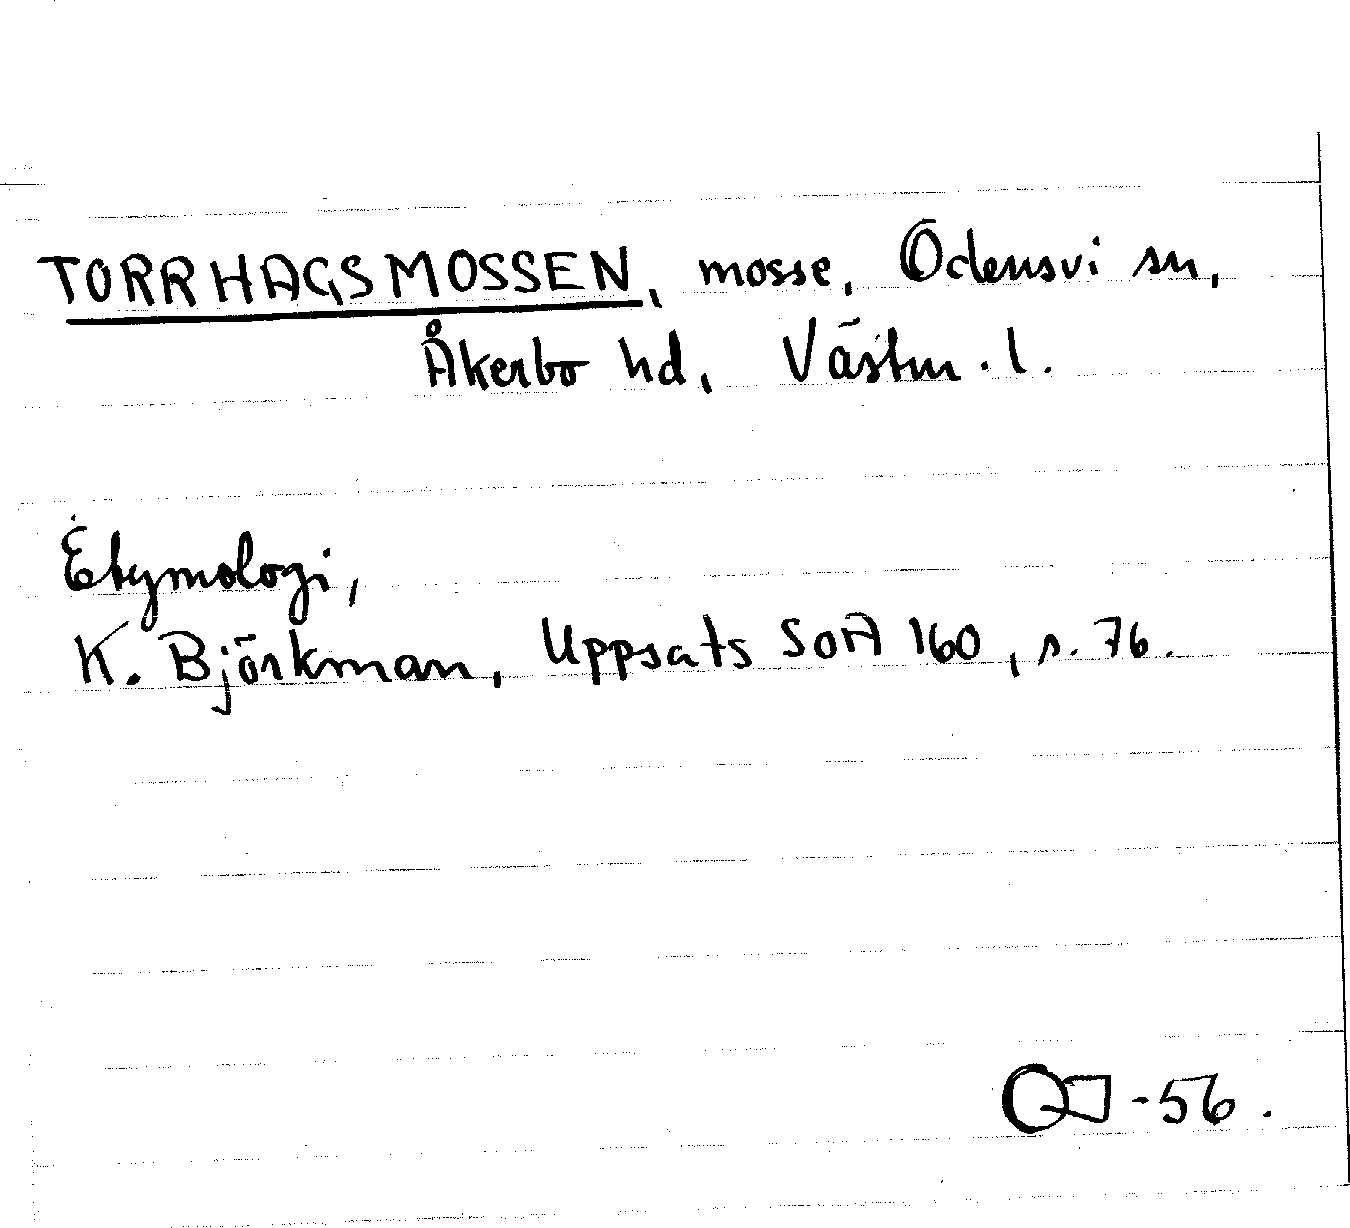 TORRHAGSMOSSEN, mosse, Odensvi sn,
Åkerbo hd, Västm. l.
Etymologi,
K. Björkman, Uppsats SOA 160, s. 76.
-56.